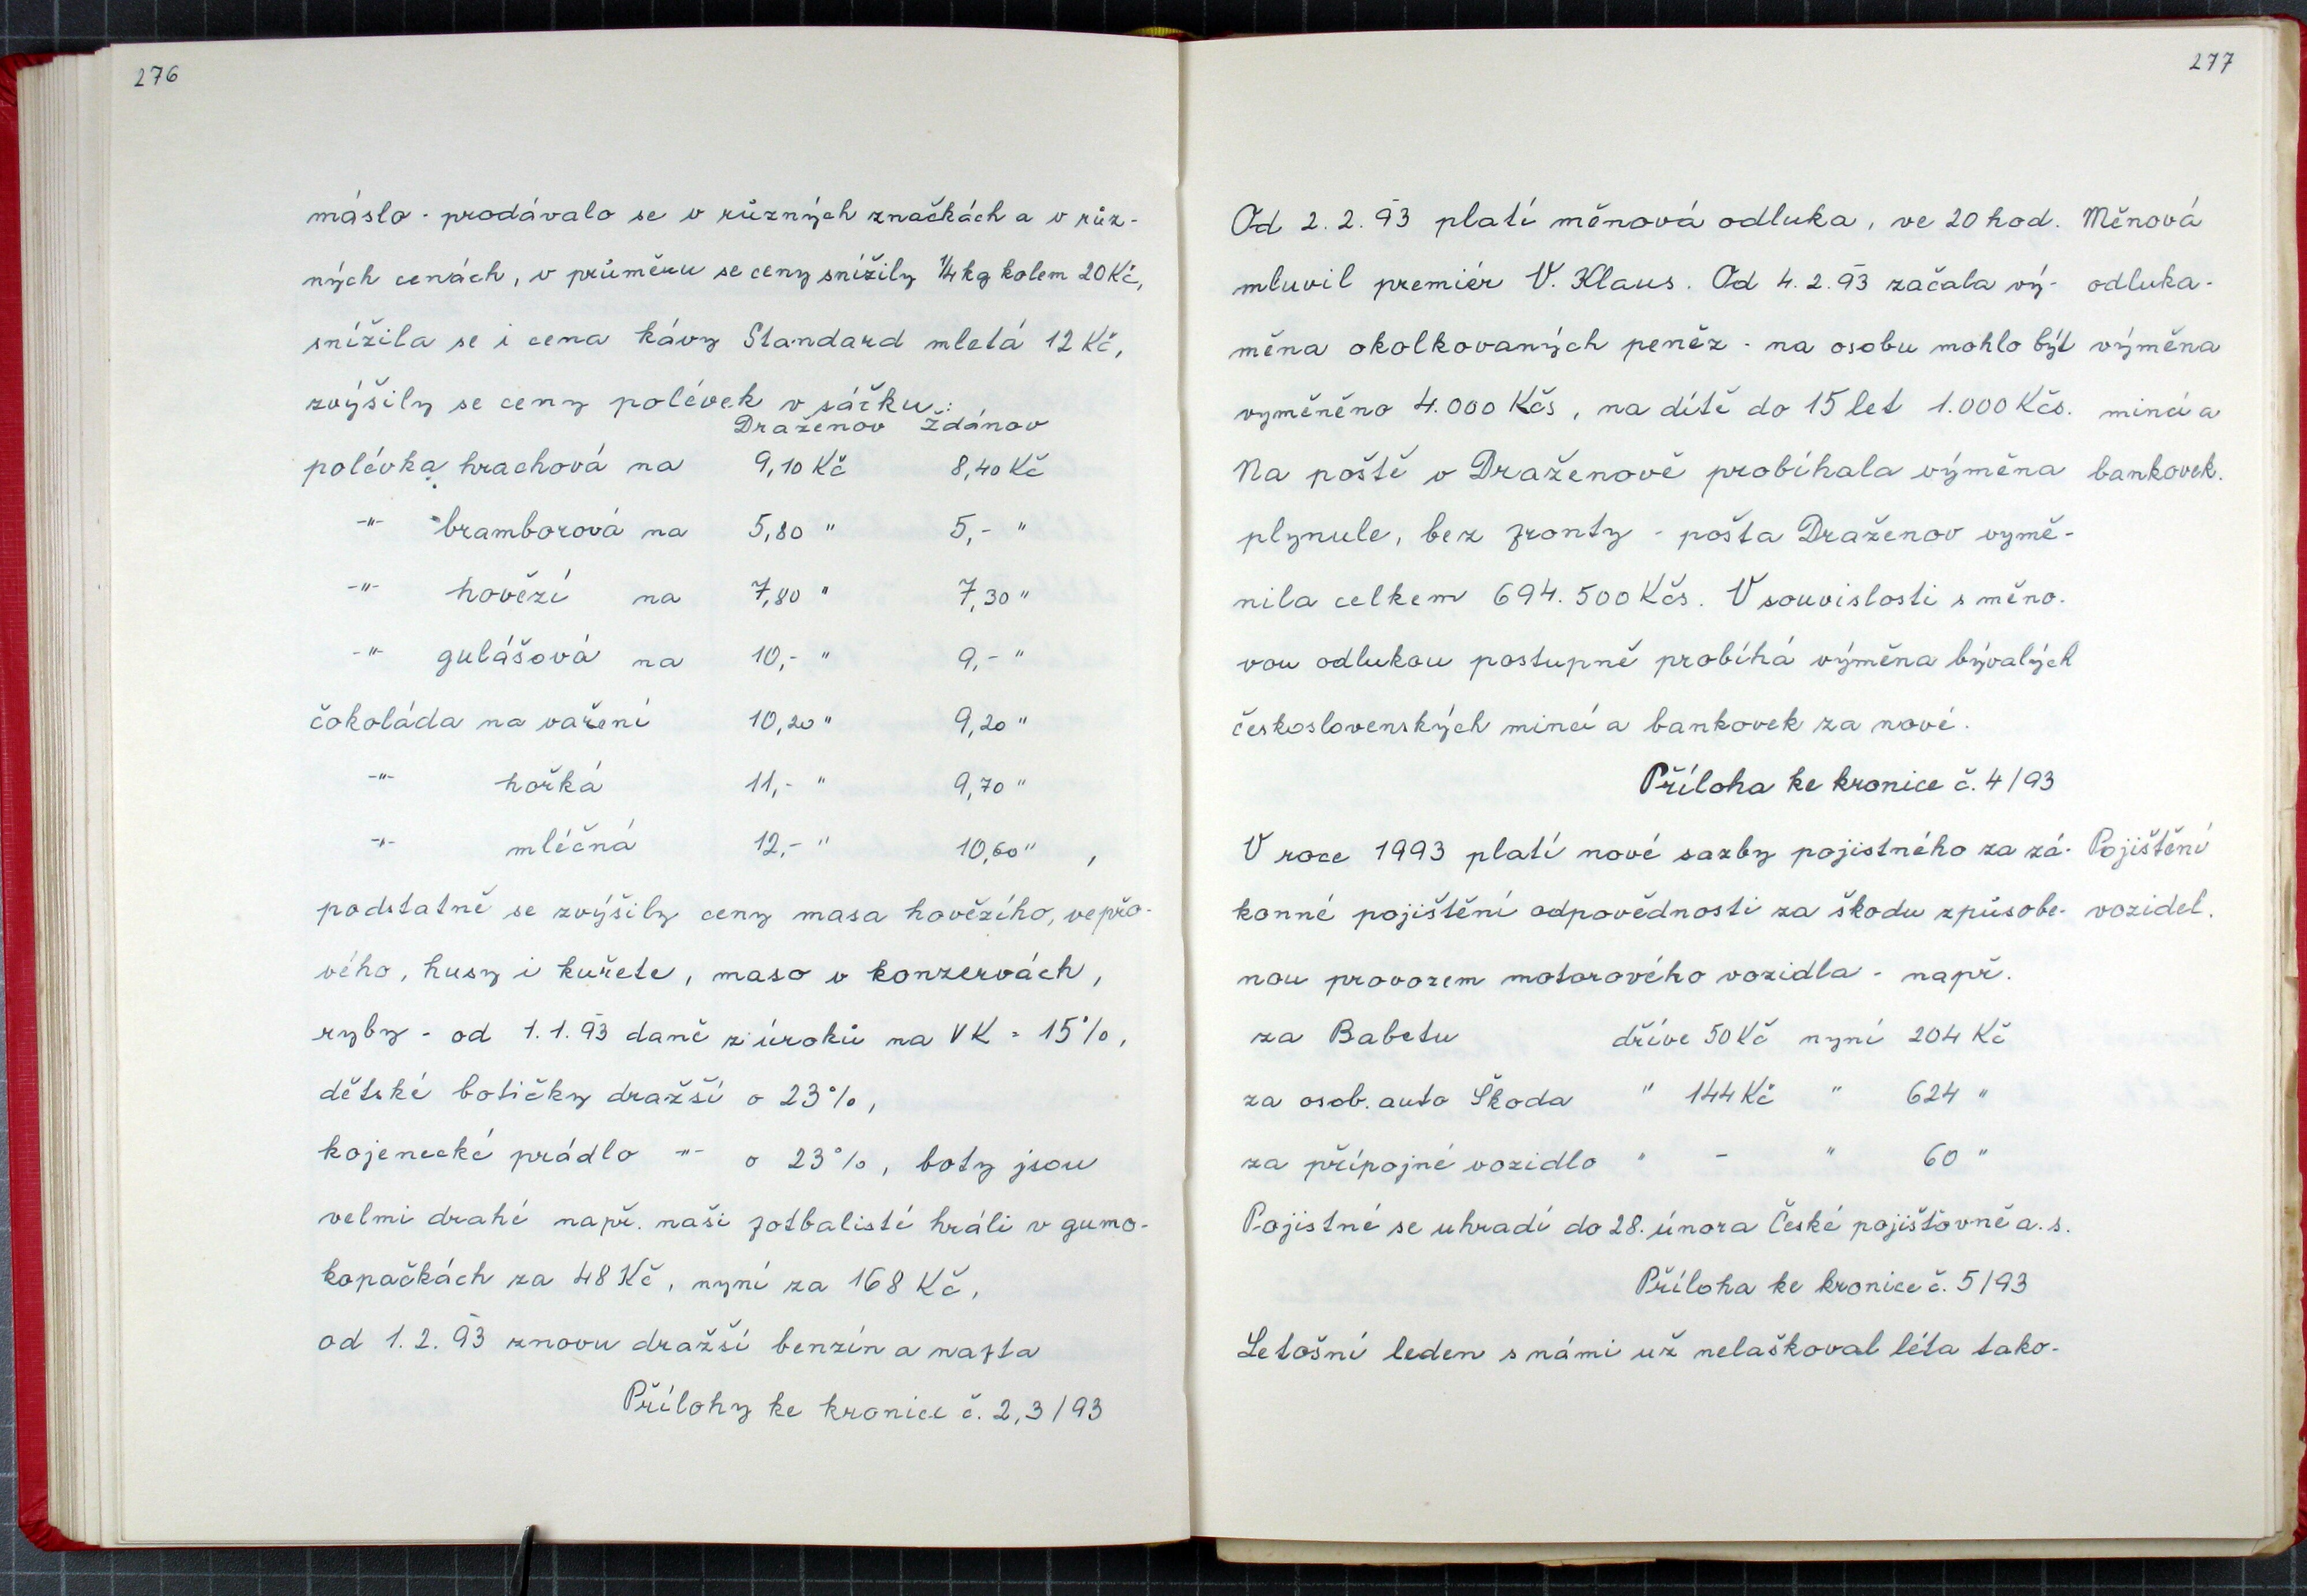 276
máslo - prodávalo se v různých značkách a v růz-
ných cenách, v průměru se ceny snížily 1/4 kg kolem 20 Kč,
snížila se i cena kávy Standard mletá 12 Kč,
zvýšily se ceny polévek v sáčku:
Draženov Ždánov
polévka hrachová na 9,10 Kč 8,40 Kč
-"- bramborová na 5,80 " 5,- "
-"- hovězí na 7,80 " 7,30 "
-"- gulášová na 10,- " 9,- "
čokoláda na vaření 10,20 " 9,20 "
-"- hořká 11,- " 9,70 "
-"- mléčná 12,- " 10,60 " ,
podstatně se zvýšily ceny masa hovězího, vepřo-
vého, husy i kuřete, maso v konzervách,
ryby - od 1.1.93 daně z úroků na VK = 15%,
dětské botičky dražší o 23%,
kojenecké prádlo -"- o 23%, boty jsou
velmi drahé např. naši fotbalisté hráli v gumo-
kopačkách za 48 Kč, nyní za 168 Kč,
od 1.2.93 znovu dražší benzín a nafta
Přílohy ke kronice č. 2,3/93
277
Od 2.2.93 platí měnová odluka, ve 20 hod. Měnová
mluvil premiér V. Klaus. Od 4.2.93 začala vý- odluka -
měna okolkovaných peněz - na osobu mohlo být výměna
vyměněno 4.000 Kčs, na dítě do 15 let 1.000 Kčs. mincí a
Na poště v Draženově probíhala výměna bankovek.
plynule, bez fronty - pošta Draženov vymě-
nila celkem 694.500 Kčs. V souvislosti s měno-
vou odlukou postupně probíhá výměna bývalých
československých mincí a bankovek za nové.
Příloha ke kronice č. 4/93
V roce 1993 platí nové sazby pojistného za zá- Pojištění
konné pojištění odpovědnosti za škodu způsobe- vozidel.
nou provozem motorového vozidla - např.
za Babetu dříve 50 Kč nyní 204 Kč
za osob. auto Škoda " 144 Kč " 624 "
za přípojné vozidlo " - " 60 "
Pojistné se uhradí do 28. února České pojišťovně a.s.
Příloha ke kronice č. 5/93
Letošní leden s námi už nelaškoval léta tako-